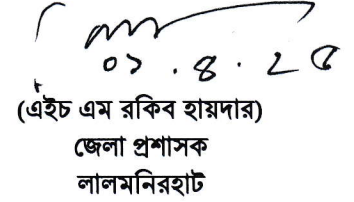 ০১.৪.২৫
(এইচ এম রকিব হায়দার)
জেলা প্রশাসক
লালমনিরহাট